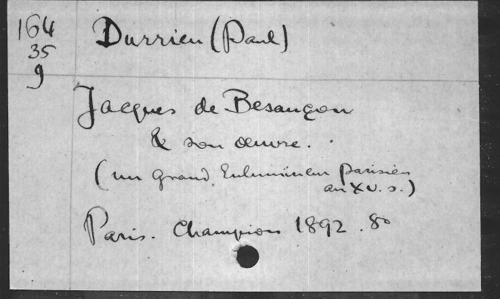 164 Durrieu (Paul)
35
9
Jacques de Besançon
& son œuvre.
(un grand Enlumineur parisien
au XV. s.)
Paris. Champion 1892. 8o